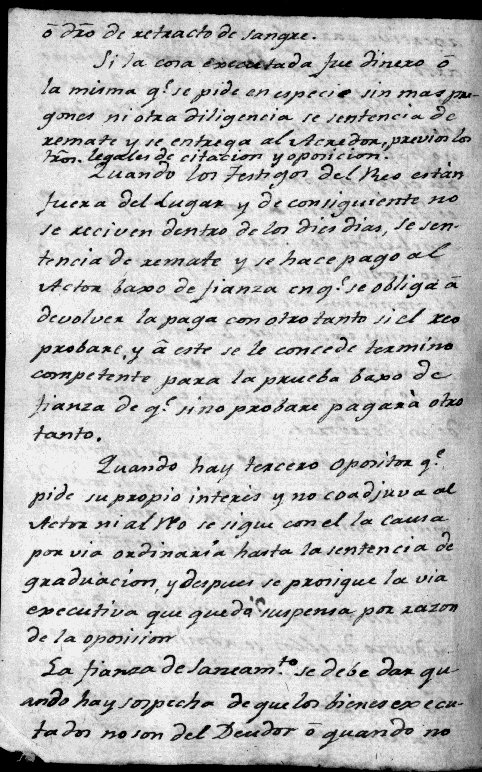 ô dro de retracto de sangre.
Si la cosa executada fue dinero ô
la misma q.e se pide en especie sin mas pre-
gones ni otra diligencia se sentencia de
remate y se entrega al Acredor, previos los
tros. legales de citacion y oposicion.
Quando los testigos del Reo están
fuera del Lugar y de consiguiente no
se reciven dentro de los dies dias, se sen-
tencia de remate y se hace pago al
Actor baxo de fianza en q.e se obliga â
devolver la paga con otro tanto si el reo
probare, y â este se le concede termino
competente para la prueba baxo de
fianza de q.e si no probare pagarà otro
tanto.
Quando hay tercero opositor q.e
pide su propio interes y no coadjuva al
Actor ni al Reo se sigue con el la causa
por via ordinaria hasta la sentencia de
graduacion, y despues se prosigue la via
executiva que queda suspensa por razon
de la oposision
La fianza de Saneam.to se debe dar qu-
ando hay sospecha de que los bienes execu-
tados no son del Deudor ô quando no